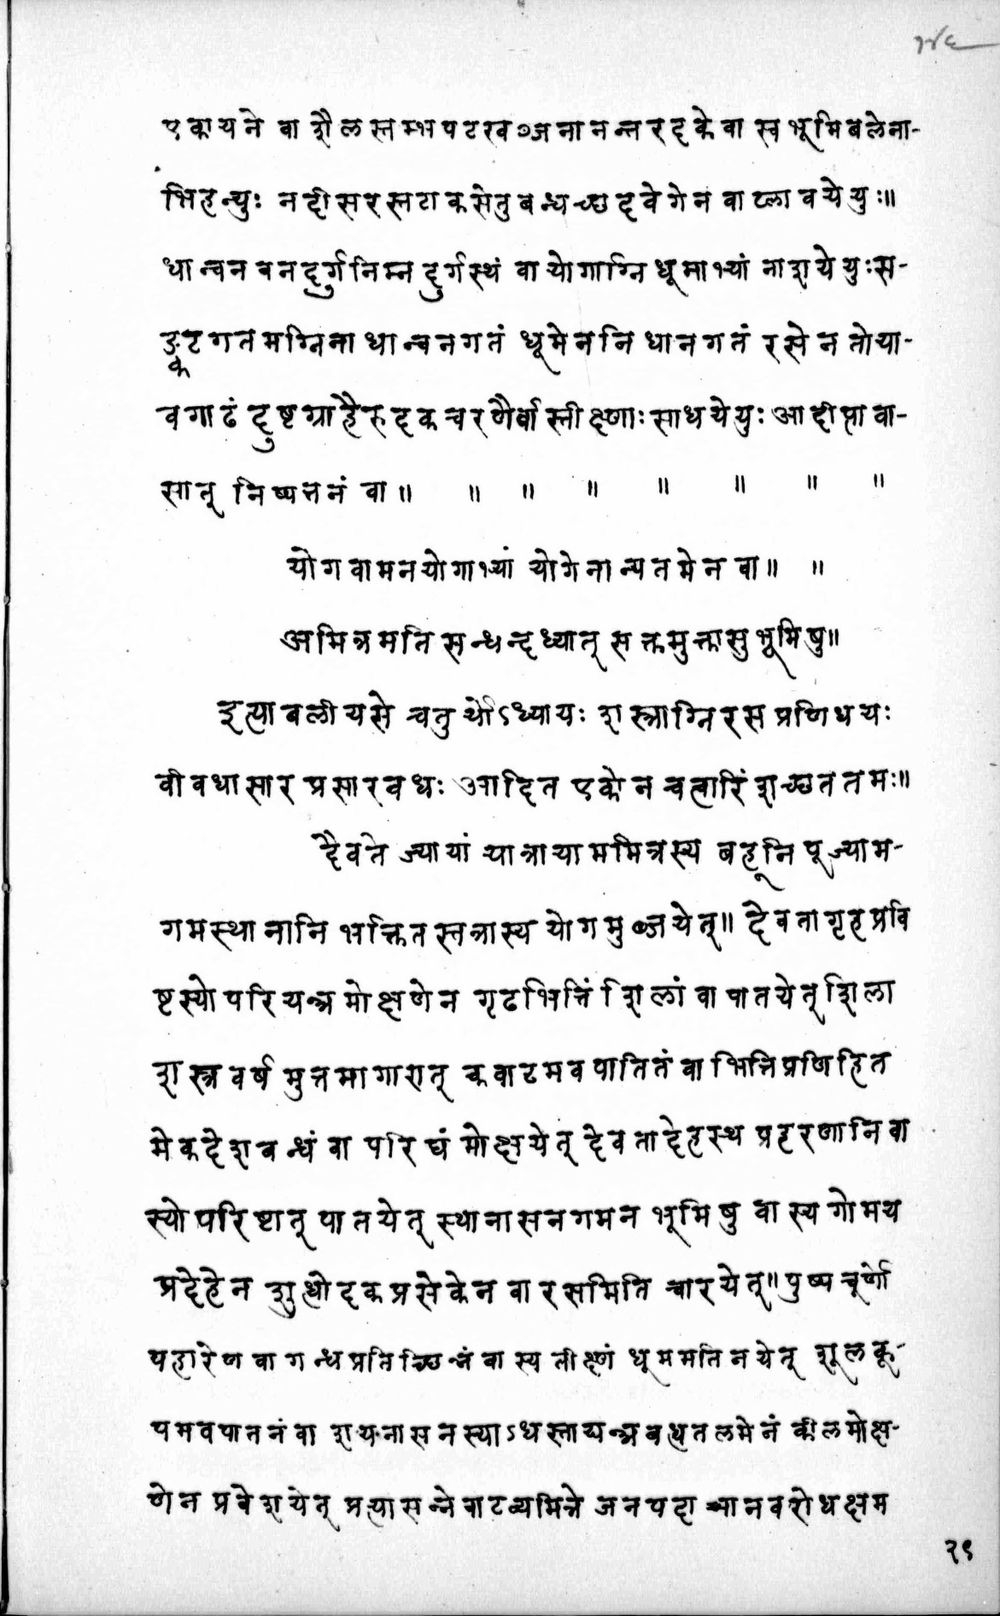 एकायने वा शैलस्तम्भपटखञ्जनानन्तरदृकेवा स्वभूमिबलेना-
भिहन्युः नदीसरस्तटाकसेतुबन्धच्छदवेगेन वा प्लावयेयुः॥
धान्वनवनदुर्गनिम्नदुर्गस्थं वा योगाग्निधूमाभ्यां नाशयेयुःस-
ङ्कटगतमग्निना धान्वनगतं धूमेन निधानगतं रसेन तोया-
वगाढं दुष्टग्राहैरुदकचरणैर्वा स्तीक्ष्णाः साधयेयुः आदीप्तावा-
सात् निष्पतनं वा॥ ॥ ॥ ॥ ॥ ॥ ॥ ॥
योगवामनयोगाभ्यां योगेनान्यतमेन वा॥ ॥
अमित्रमतिसन्धन्दध्यात् सक्तमुक्तासु भूमिषु॥
इत्याबलीयसे चतुर्थोऽध्यायः शस्त्राग्निरसप्रणिधयः
वीवधासारप्रसारवधः आदित एकोनचत्वारिंशच्छततमः॥
दैवतेज्यायां यात्रायाममित्रस्य बहूनि पूज्याम-
गमस्थानानि भक्तितस्तत्रास्य योगमुञ्जयेत्॥ देवतागृहप्रवि
ष्टस्योपरि यन्त्रमोक्षणेन गूढभित्तिं शिलां वा पातयेत् शिला
शस्त्रवर्षमुत्तमागारात् कवाटमवपातितं वा भित्तिप्रणिहित
मेकदेशबन्धं वा परिघं मोक्षयेत् देवतादेहस्थप्रहरणानि वा
स्योपरिष्टात् पातयेत् स्थानासनगमनभूमिषु वास्य गोमय
प्रदेहेन शुधोदकप्रसेकेन वा रसमिति चारयेत्॥ पुष्पचूर्णो
पहारेण वा गन्धप्रतिच्छिन्नं वास्य तीक्ष्णं धूममतिनयेत् शूलकू-
पमवपातनं वा शयनासनस्याऽधस्ताद्यन्त्रबधतलमेनं कीलमोक्ष-
णेन प्रवेशयेत् प्रत्यासन्ने वाटव्यमित्रे जनपदाच्चानवरोधक्षम
२९